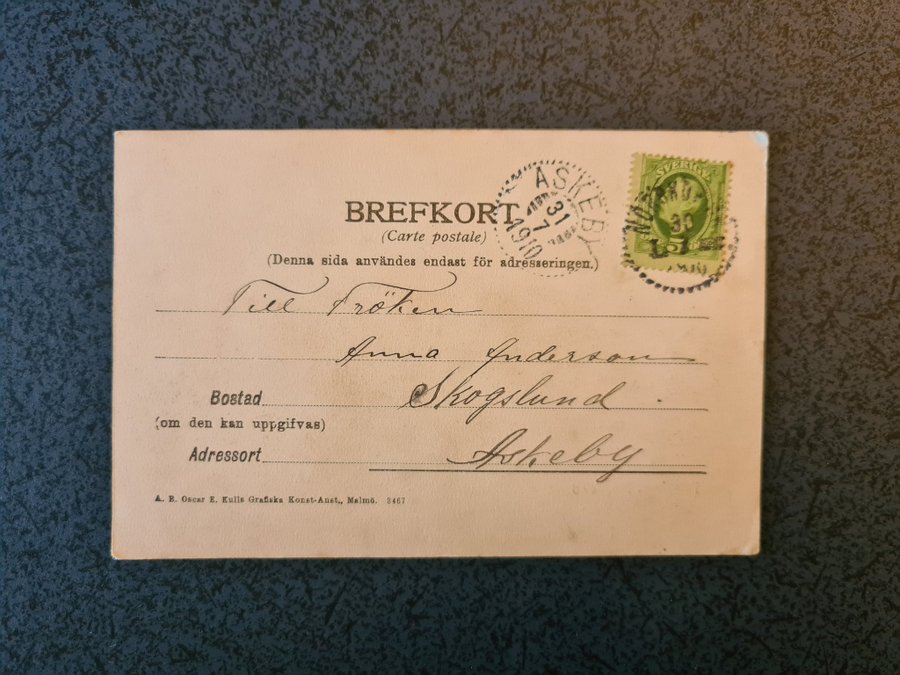 BREFKORT
(Carte postale)
(Denna sida användes endast för adresseringen.)
ASKEBY
31
7
1910
SVERIGE
30
5
Till Fröken
Anna Anderson
Bostad Skogslund
(om den kan uppgifvas)
Adressort Askeby
A. B. Oscar E. Kulls Grafiska Konst-Anst., Malmö. 3467